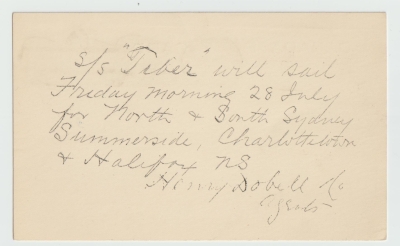 s/s "Tiber" will sail
Friday morning 28 July
for North & South Sydney
Summerside, Charlottetown
& Halifax NS
Henry Dobell & Co
Agents